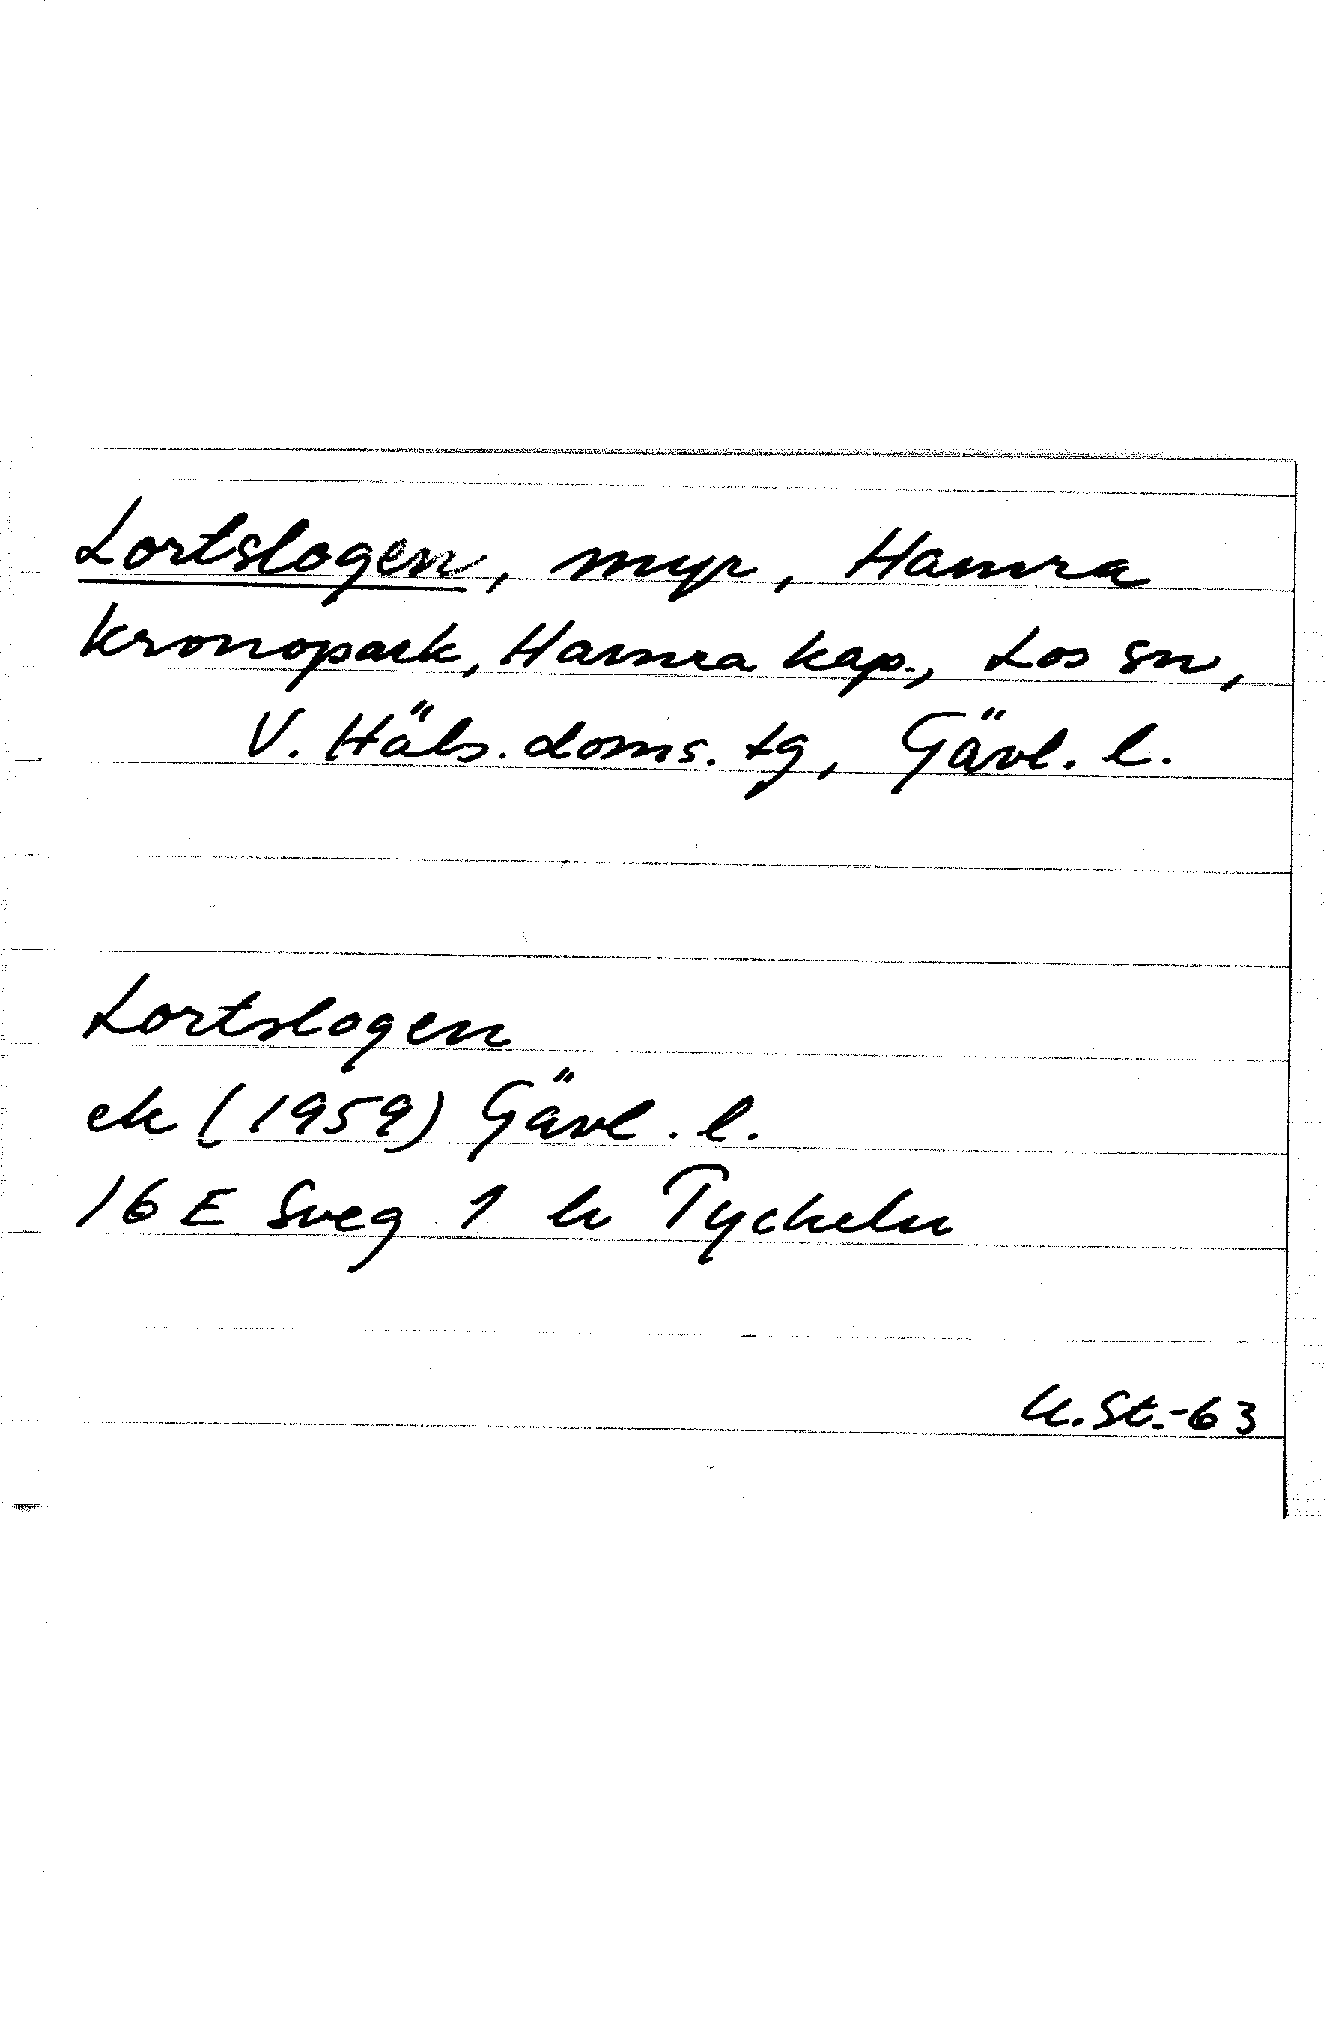 Lortslogen, myr, Hamra
kronopark, Hamra kap., Los sn,
V. Häls. doms. tg, Gävl. l.
Lortslogen
ek (1959) Gävl. l.
16 E Sveg 1 h Tyckeln
U.St.-63